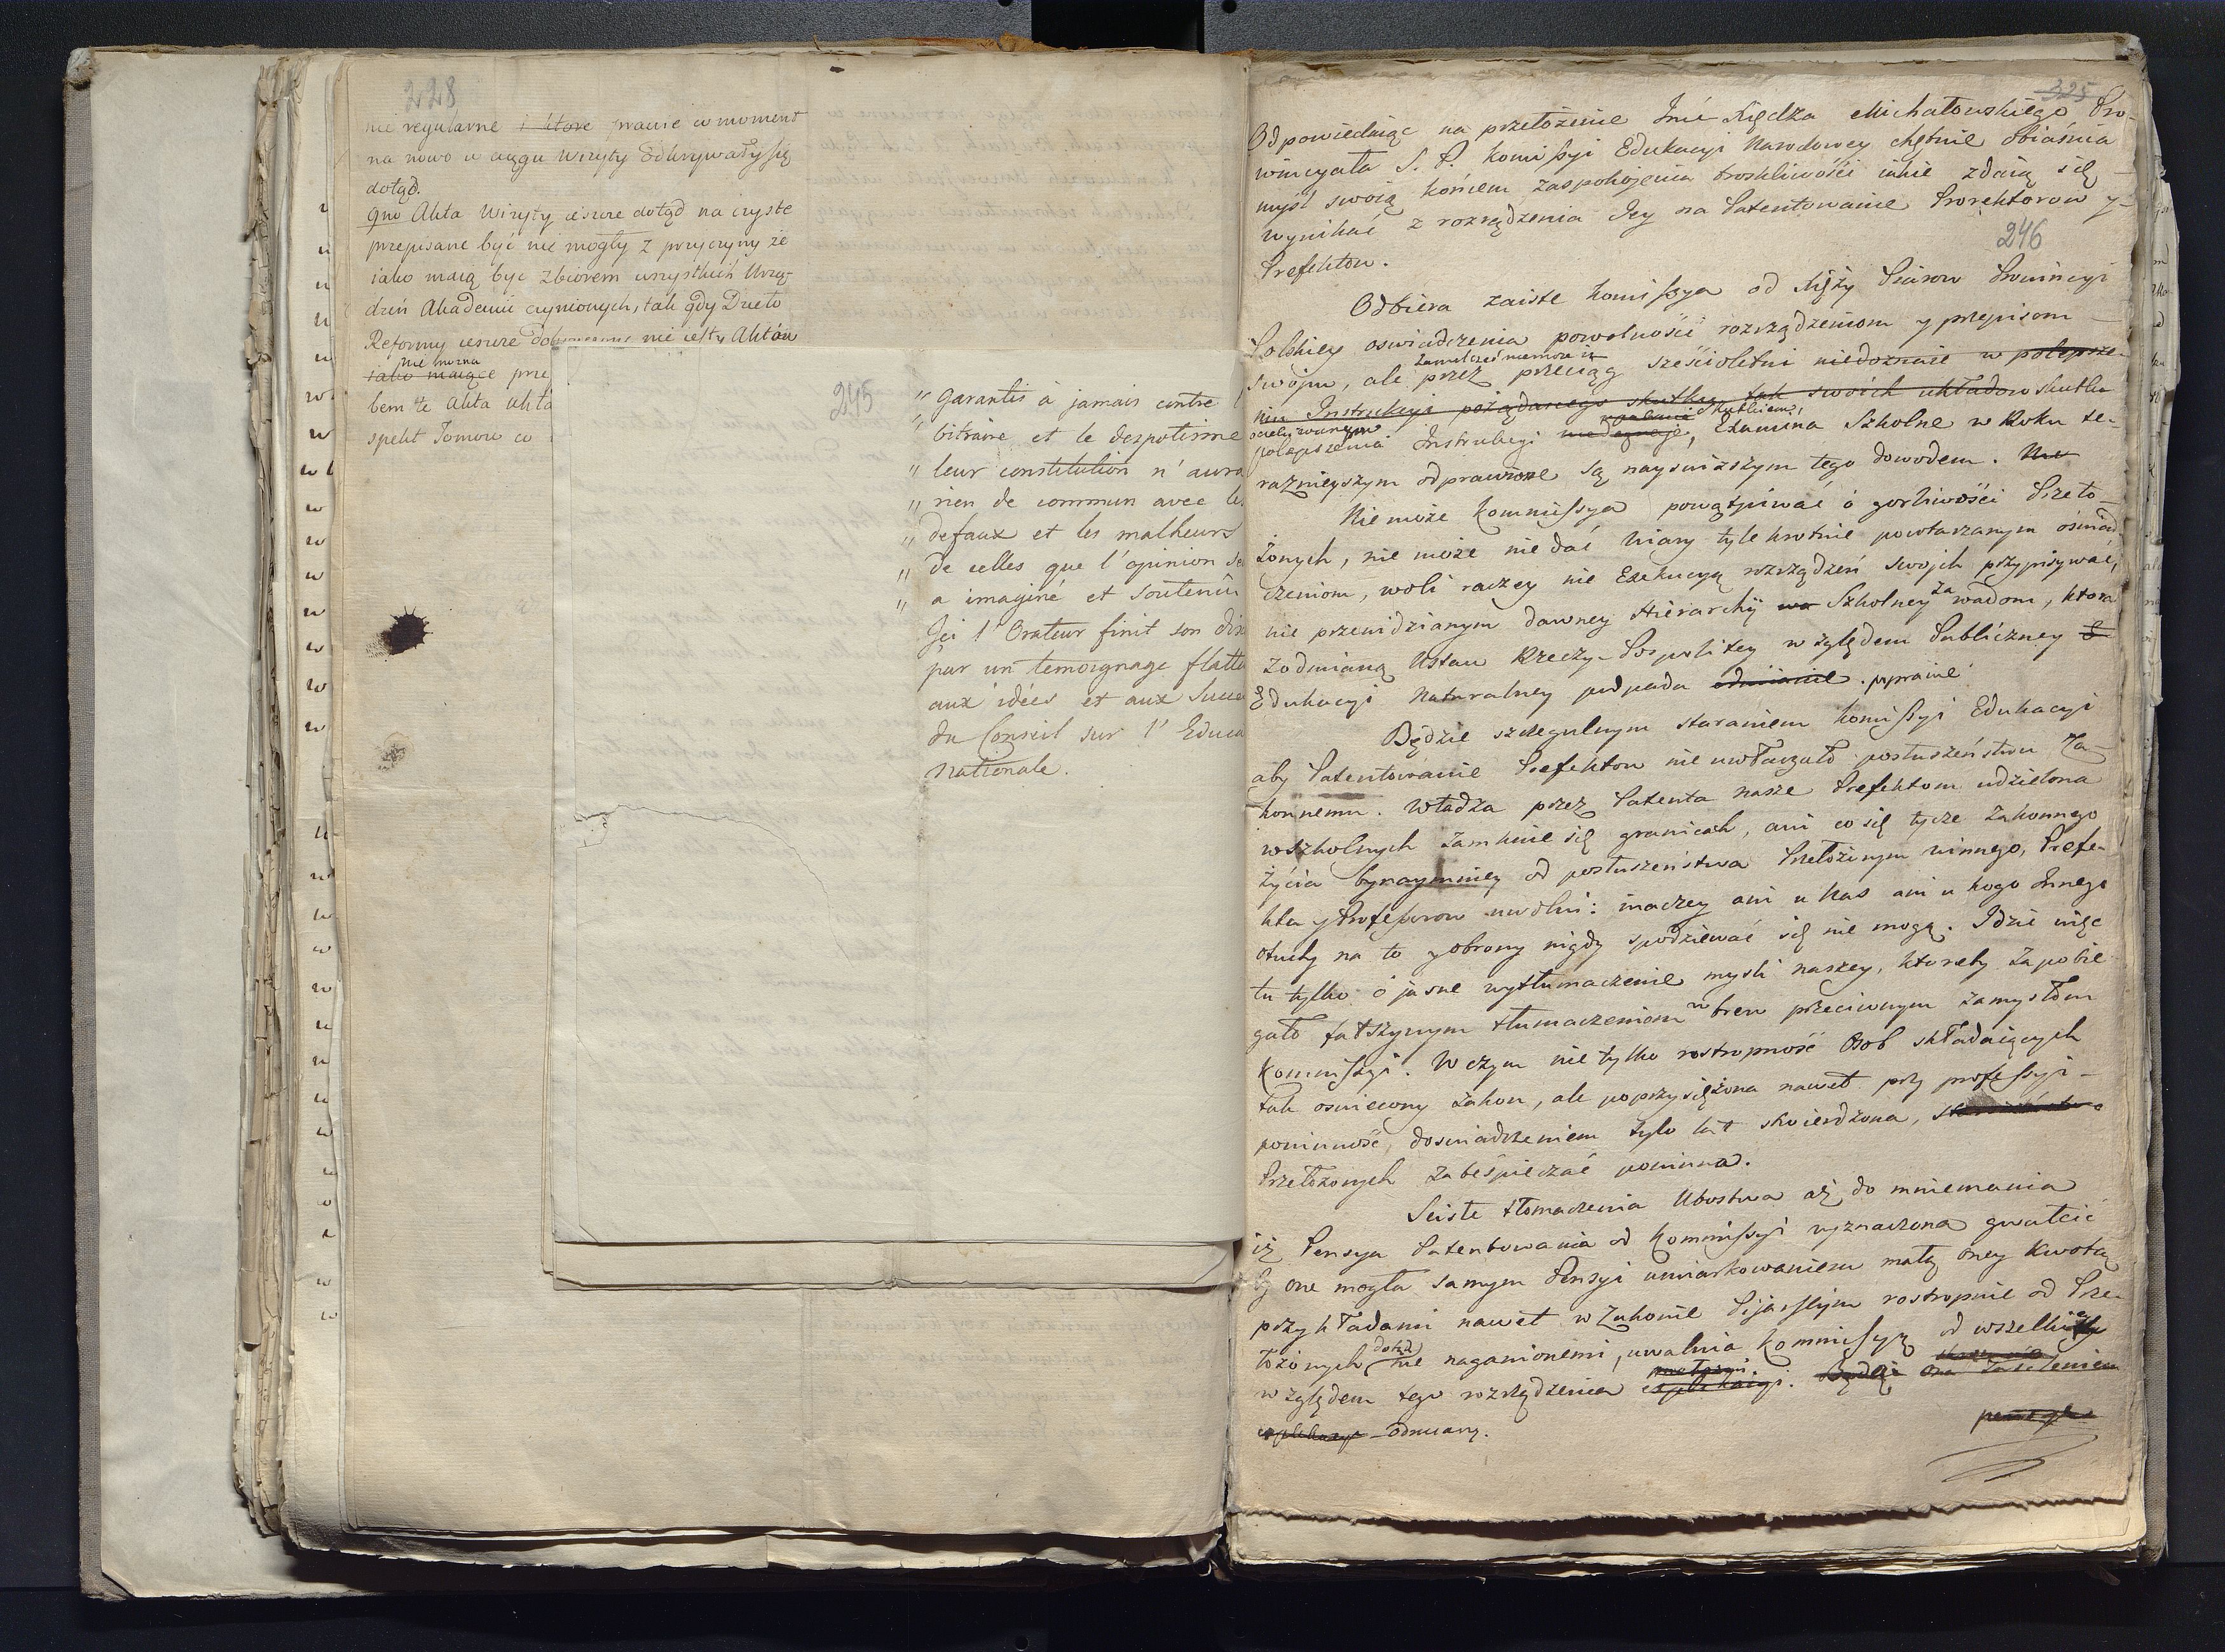 228
nie regularne i ktore prawie w moment
na nowo w ciągu Wizyty odkrywały się
dotąd.
9no Akta Wizyty ieszcze dotąd na czyste
przepisane być nie mogły z przyczyny że
iako maią być zbiorem wszystkich Urzą-
dzeń Akademii czynionych, tak gdy Dzieło
Reformy ieszcze nie iest, Aktów
nie można
iako maiące prze
bem te Akta
spekt Tomow co
245
" garantis à jamais contre l
" bitraire et le despotisme
leur constitution n'aura
" rien de commun avec les
" defaux et les malheurs
" de celles que l'opinion se
" a imaginé et soutenû
Ici l'Orateur finit son dis
par un temoignage flatte
aux idées et aux Succe
du Conseil sur l'Educa
nationale.
325
Odpowiedaiąc na przełożenie Jmć Xiędza Michałowskiego Pro-
wincyała S. P. Komissyi Edukacyi Narodowey chętnie obiaśnia
myśl swoią końcem zaspokojenia troskliwości iakie zdaią się
wynikać z rozrządzenia Jey na Patentowanie Prorektorow y
Prefektow.
246
Odbiera zaiste Komissya od Xięży Piiarow Prowincyi
Polskiey oswiadczenia powolności rozrządzeniom y przepisom
swoim, ale przez przeciąg sześcioletni niedoznaie w polepsze-
niu Instrukcyi pożądanego skutku, tak swoich układow skutku
polepszenia Instrukcyi Examina Szkolne w Roku te-
raznieyszym odprawione są nayświższym tego dowodem.
Nie może Kommissya powątpiwać o gorliwości Przeło-
żonych, nie może nie dać wiary tyle krotnie powtarzanym oświad-
czeniom, woli raczey nie Exekucyą rozrządzeń swoich przypisywać,
nie przewidzianym dawney Hierarchij Szkolney zawadom, ktora
z odmianą Ustaw Rzeczy-Pospolitey względem Publiczney
Edukacyi naturalney podpada odmianie. poprawie
Będzie szczegulnym staraniem Komissyi Edukacyi
aby Patentowanie Prefektow nie uwłaczało posłuszeństwu Za-
konnemu. Władza przez Patenta nasze Prefektom udzielona
w szkolnych zamknie się granicach, ani co się tycze Zakonnego
życia bynaymniey od posłuszeństwa Przełożonym winnego, Prefe-
kta y Professorow uwolni: inaczey ani u Nas ani u kogo Innego
otuchy na to y obrony nigdy spodziewać się nie mogą. Idzie więc
tu tylko o jasne wytłumaczenie mysli naszey, ktoreby zapobie-
gało fałszywym tłumaczeniom wbrew przeciwnym zamysłom
Kommissyi. W czym nie tylko rostropność Osob składaiących
tak oswiecony Zakon, ale poprzysiężona nawet przy professyi-
powinność, doswiadczeniem tylo lat stwierdzona,
Przełożonych zabespieczać powinna.
Sciste tłomaczenia Ubostwa aż do mniemania
iż Pensya Patentowania od Kommissyi wyznaczona gwałcić
by one mogła samym Pensyi umiarkowaniem małą oney Kwotą
przykładami nawet w Zakonie Pijarskim rostropnie od Prze-
łożonych dotąd nie naganionemi, uwalnia Kommissyą od wszelkiey
względem tego rozrządzenia
odmiany.